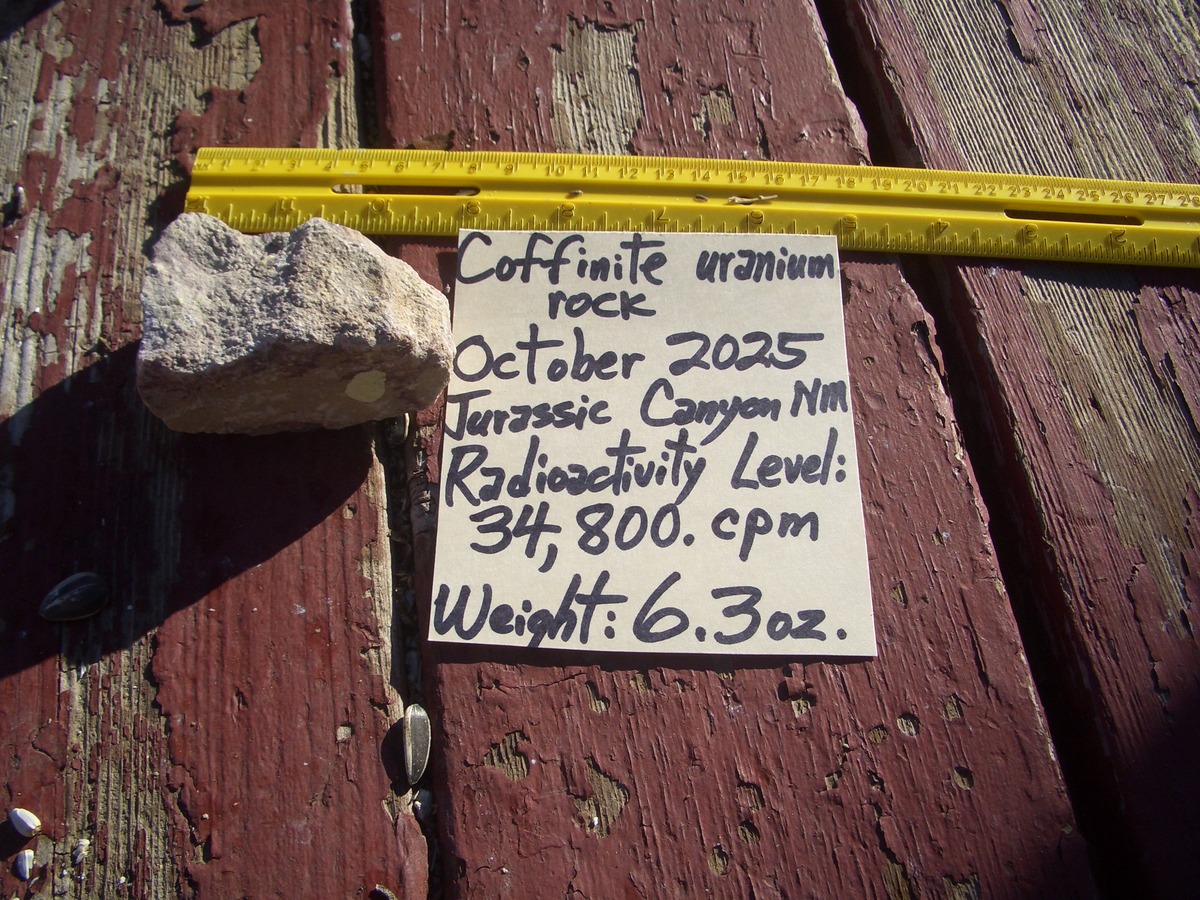 1 2 3 4 5 6 7 8 9 10 11 12 13 14 15 16 17 18 19 20 21 22 23 24 25 26 27 28
Coffinite uranium
rock
October 2025
Jurassic Canyon Nm
Radioactivity Level:
34,800. cpm
Weight: 6.3 oz.